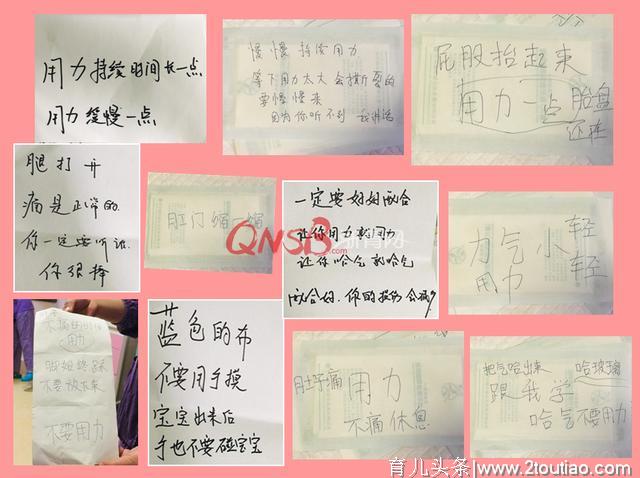 用力持续时间长一点
用力缓慢一点
慢慢持续用力
等下用力太大会撕裂的
要慢慢来
因为你听不到我讲话
屁股抬起来
用力一点
胎盘
还在
腿打开
痛是正常的.
你一定要听
你很棒
肛门缩一缩
一定要好好配合
让你用力就用力
让你哈气就哈气
配合好.你的损伤会减少
力气小
用力
轻
轻
不痛的时候
用力
脚姐终踩
不要放下来
不要用力
蓝色的布
不要用手摸
宝宝出来后
手也不要碰宝宝
肚子痛 用力
不痛休息
把气哈出来 哈玻璃
跟我学
哈气不要用力
QNSB
育儿头条/www.2toutiao.com